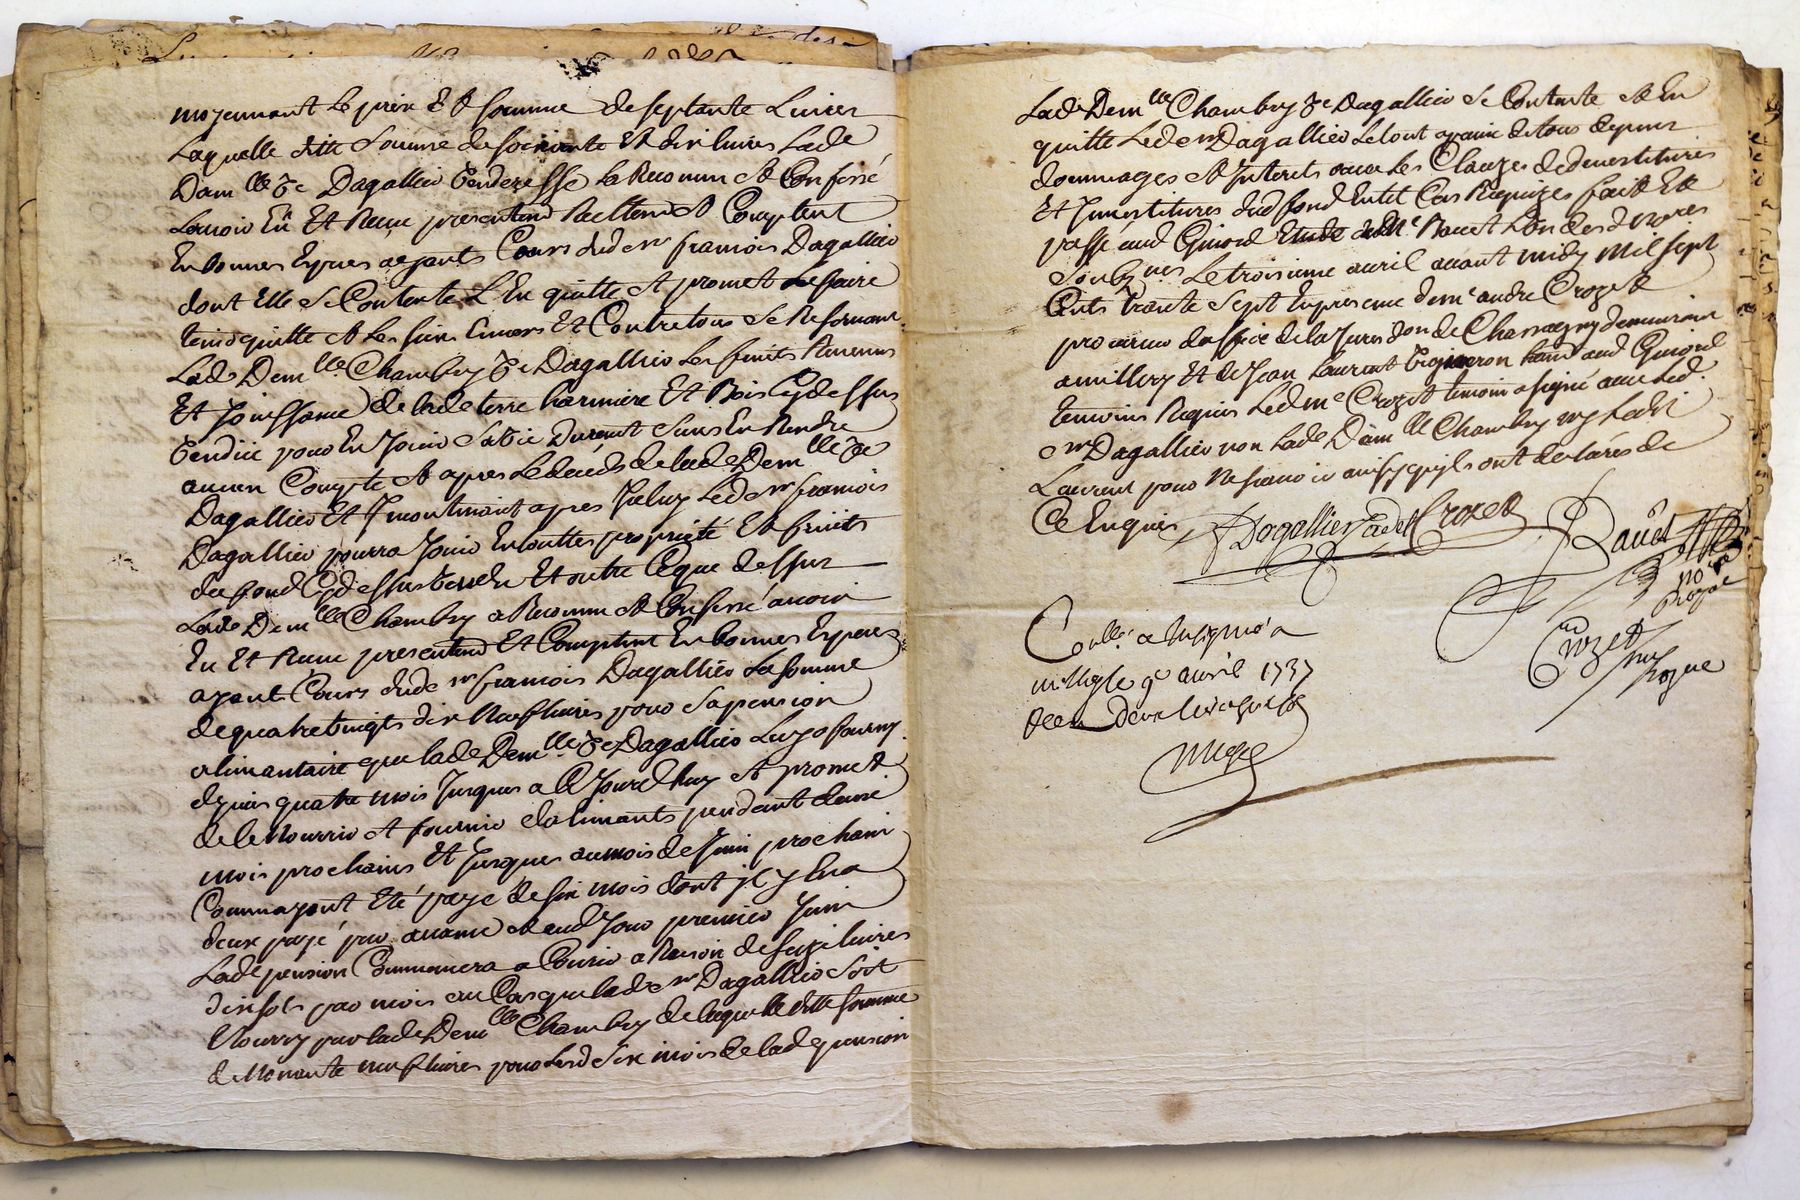 moyennant le prix Et somme de septante Livres
Laquelle ditte Somme de soixante Et dix livres Lade
Dam lle Ve Dagallier venderesse La Reconnu Et Confessé
Lavoir Eü Et Reçu presentemt Reellemt Et Comptent
En bonnes Espèces ayants Cours dud sr francois Dagallier
dont Elle se Contente L'En quitte Et promet Le faire
tenir quitte Et les siens Envers Et Contre tous se Reservant
Lade Dem lle Chambry Ve Dagallier Les fruits Revenus
Et Jouissance de lade terre hermière Et Bois Cy dessus
vendüe pour En Jouir sa vie Durant sans En Rendre
aucun Compte Et apres Le deceds de lade Dem lle Ve
Dagallier Et Incontinant apres Iceluy Led sr francois
Dagallier pourra Jouir En touttes proprieté Et fruits
du fond Cy dessus vendu Et outre Ce que dessus
Lade Dem lle Chambry a Reconnu Et Confessé avoir
Eu Et Reçu presentemt Et Comptent En bonnes Especes
ayant Cours dud sr francois Dagallier La somme
de quatre vingts dix Neuf livres pour sa pension
alimantaire que lade Dem lle Ve Dagallier Luy a fourny
depuis quatre mois Jusques a Ce Jourd'huy Et promet
de le Nourrir Et fournir d'alimants pendant deux
mois prochains Et Jusques au mois de Juin prochain
Comme ayant Eté payé de six mois dont il y En a
deux payé par avance Et aud Jour premier Juin
Lade pension Commancera a Courir a Raison de seize livres
dix sols par mois au Cas que led sr Dagallier soit
Nourry par lade Dem lle Chambry de laquelle ditte somme
de Nonante neuf livres pour Lesd six mois de lade pension
Lade Dem lle Chambry Ve Dagallier se Contente Et En
quitte Led sr Dagallier Le tout a peine de tous depens
dommages Et Interets avec Les Clauzes de devestitures
Et Investitures dud fond En tel Cas Requizes fait Et
passé aud Givord Etude de Me Bauet L'un des d nores
Soubz nes Le troisieme avril avant midy Mil sept
Cents trante Sept En presence de me andre Crozet
procureur d'office de la Jurisd on de Chassagny demeurant
a millery Et de Jean Laurent vigneron hant aud Givord
temoins Requis Led Me Crozet temoin a signé avec led
sr Dagallier non Lade Dam lle Chambry ny ledt
Laurent pour Ne scavoir ainsy qu'ils ont declarés de
Ce Enquis Dagallier Cadet Crozet Bauet
no re
Royal
Conllé a Insignué a
millery Le 9e avril 1737
Crozet
Royal